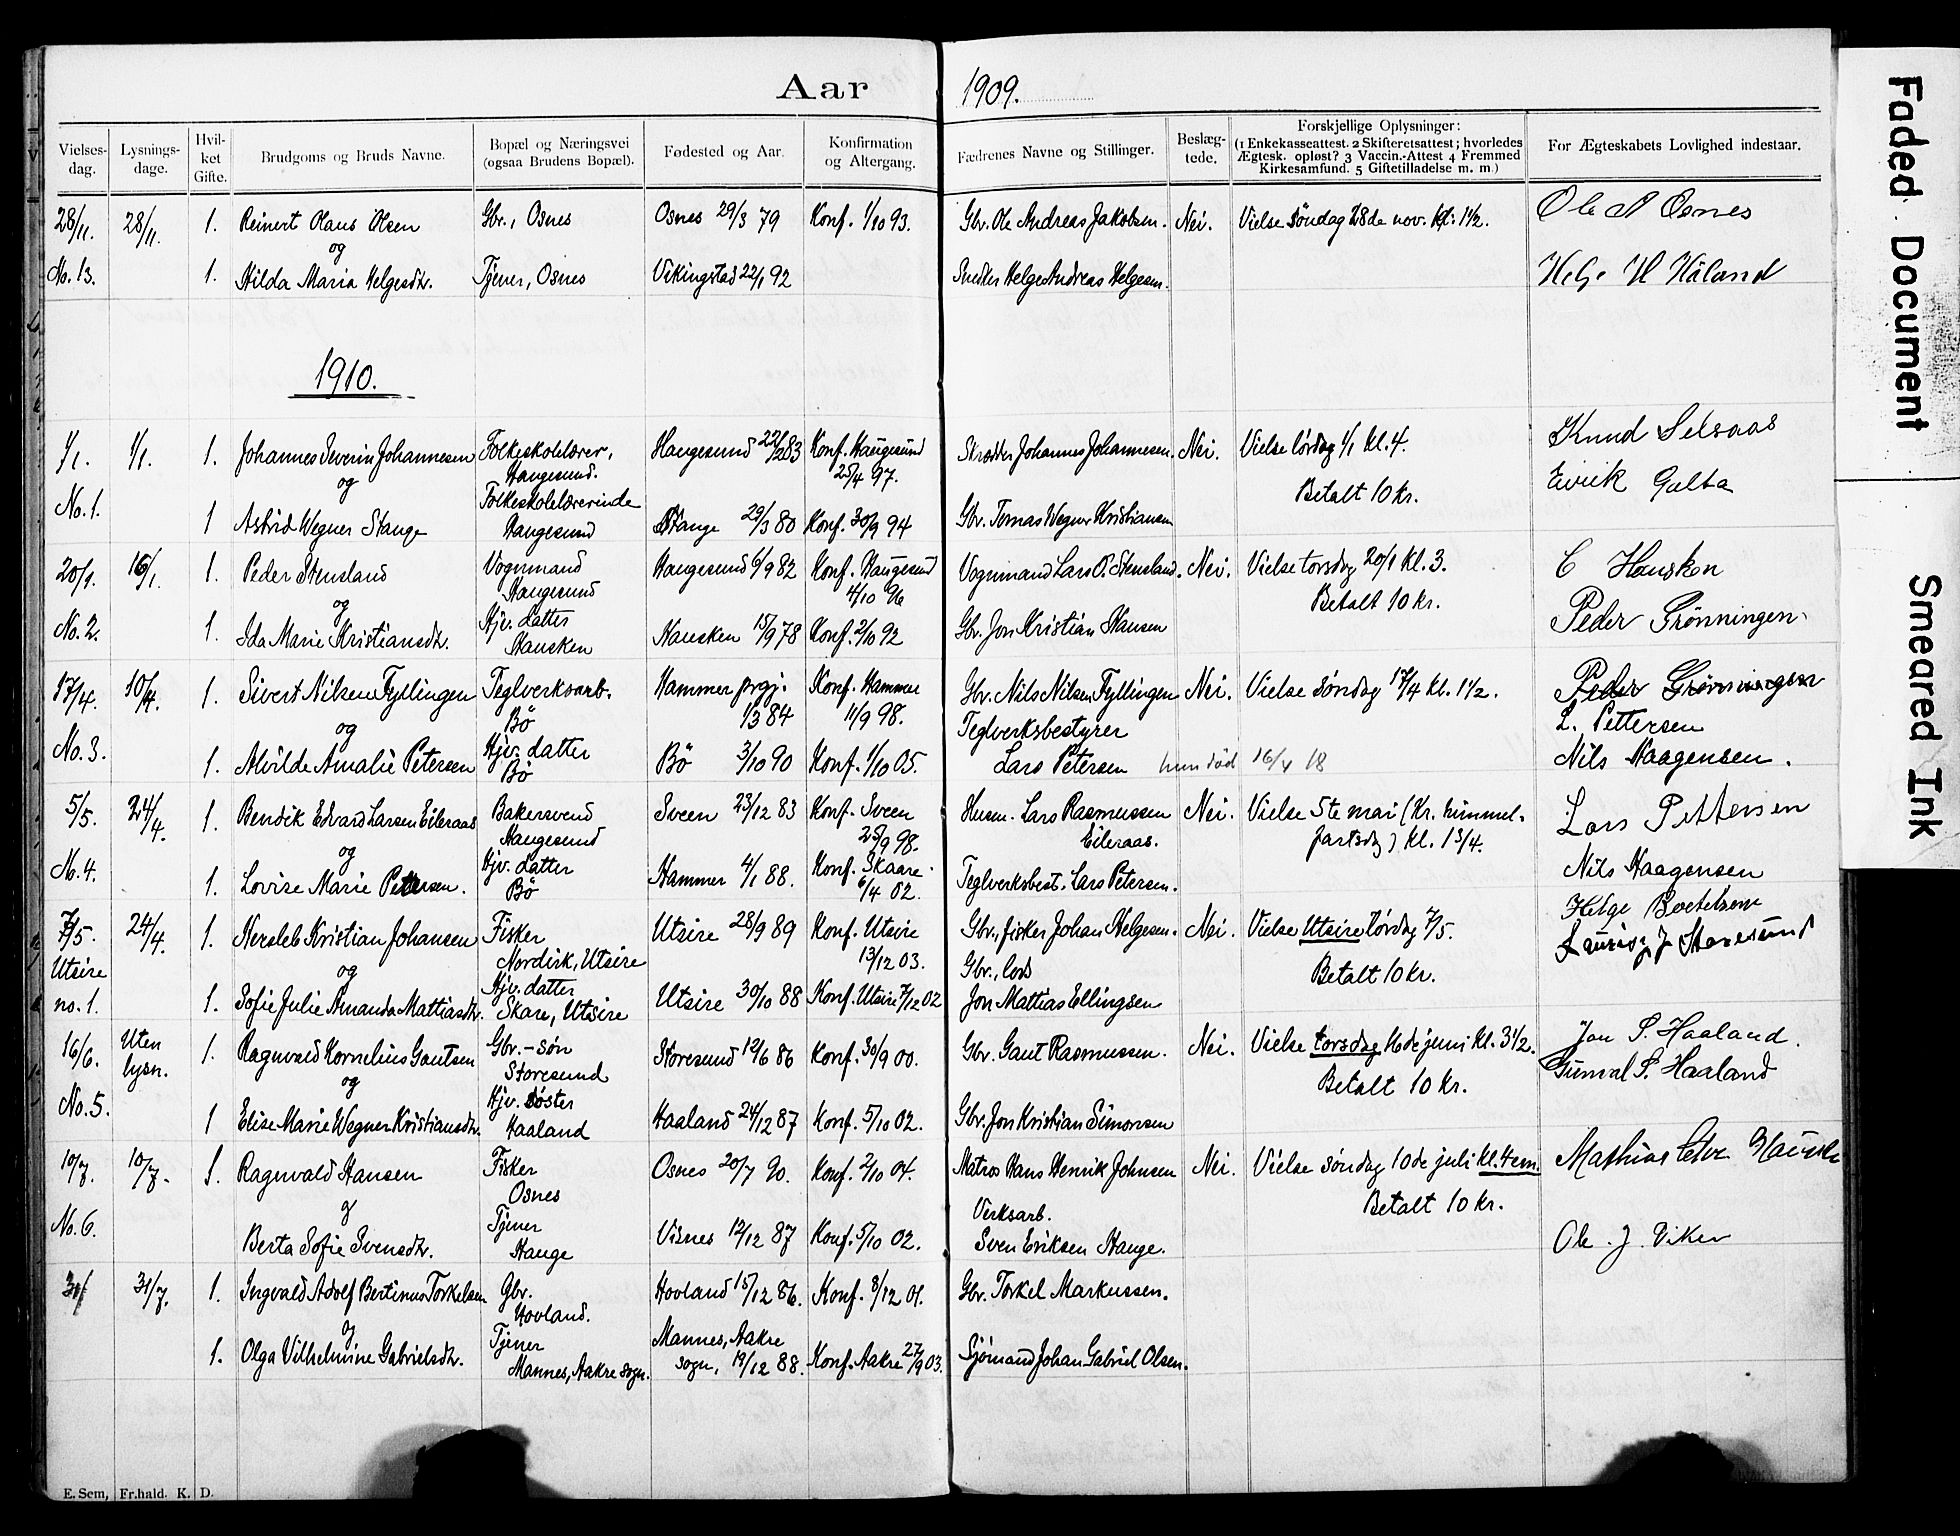 Aar 1909.
Vielses-dag. Lysnings-dage. Hvil-ket Gifte. Brudgoms og Bruds Navne. Bopæl og Næringsvei (ogsaa Brudens Bopæl). Fødested og Aar. Konfirmation og Altergang. Fædrenes Navne og Stillinger. Beslæg-tede. Forskjellige Oplysninger: (1 Enkekasseattest. 2 Skifteretsattest; hvorledes Ægtesk. opløst? 3 Vaccin.-Attest 4 Fremmed Kirkesamfund. 5 Giftetilladelse m. m.) For Ægteskabets Lovlighed indestaar.
28/11. 28/11. 1. Reinert Olaus Olsen Gbr., Osnes Osnes 29/3 79 Konf. 1/10 93. Gbr. Ole Andreas Jakobsen. Nei. Vielse søndag 28de nov. kl. 1 1/2. Ole A Osnes
og
No. 13. 1. Hilda Maria Helgesdtr. Tjener, Osnes Vikingstad 22/1 92 Snedker Helge Andreas Helgesen. Helge H Håland
1910.
1/1. 1/1. 1. Johannes Severin Johannesen Folkeskolelærer, Haugesund. Haugesund 22/2 83 Konf. Haugesund 25/4 97. Skrædder Johannes Johannesen. Nei. Vielse lørdag 1/1 kl. 4. Knud Selsaas
og Betalt 10 kr. Eirik Galta
No. 1. 1 Astrid Wegner Stange Folkeskolelærerinde Haugesund Stange 29/3 80 Konf. 30/9 94 Gbr. Tomas Wegner Kristiansen
20/1. 16/1. 1. Peder Stensland Vognmand Haugesund Haugesund 6/9 82 Konf. Haugesund 4/10 96 Vognmand Lars O. Stensland. Nei. Vielse torsdag 20/1 kl. 3. C Hausken
og Betalt 10 kr.
No. 2. 1. Ida Marie Kristiansdtr. Hjv. datter Hausken Hausken 15/9 78 Konf. 2/10 92 Gbr. Jon Kristian Hansen Peder Grønningen
17/4. 10/4. 1. Sivert Nilsen Fyllingen Teglverksarb. Bö Hammer prgj. 1/3 84 Konf. Hammer 11/9 98. Gbr. Nils Nilsen Fyllingen Nei. Vielse søndag 17/4 kl. 1 1/2. Peder Grønningen
og Teglverksbestyrer L. Pettersen
No. 3. 1. Alvilde Amalie Petersen Hjv. datter Bö Bö 3/10 90 Konf. 1/10 05. Lars Petersen hun død 16/4 18 Nils Haagensen.
5/5. 24/4. 1. Bendik Edvard Larsen Eileraas Bakersvend Haugesund Sveen 23/12 83 Konf. Sveen 25/9 98. Husm. Lars Rasmussen Eileraas. Nei. Vielse 5te mai (Kr. himmel-fartsdg) kl. 1 3/4. Lars Pettersen
og
No. 4. 1. Lovise Marie Petersen. Hjv. datter Bö Hammer 4/1 88. Konf. Skaare 6/4 02. Teglverksbest. Lars Petersen. Nils Haagensen
7/5. 24/4. 1. Nersleb Kristian Johansen Fisker Nordvik, Utsire Utsire 28/9 89 Konf. Utsire 13/12 03. Gbr., fisker Johan Helgesen. Nei. Vielse Utsire lørdag 7/5. Helge
Utsire og Gbr., lods Betalt 10 kr.
no. 1. 1. Sofie Julie Amanda Mattiasdtr. Hjv. datter Skare, Utsire Utsire 30/10 88 Konf. Utsire 7/12 02 Jon Mattias Ellingsen
16/6. Uten lysn. 1. Ragnvald Kornelius Gautsen Gbr.-søn Storesund Storesund 12/6 86 Konf. 30/9 00. Gbr. Gaut Rasmussen. Nei. Vielse torsdag 16de juni kl. 3 1/2. Jon S. Haaland.
og Betalt 10 kr. Gunval S. Haaland
No. 5. 1 Elise Marie Wegner Kristiansdtr. Hjv. søster Haaland Haaland 24/12 87 Konf. 5/10 02. Gbr. Jon Kristian Simonsen
10/7. 10/7. 1. Ragnvald Hansen Fisker Osnes Osnes 20/7 90. Konf. 2/10 04. Matros Hans Henrik Johnsen Nei. Vielse søndag 10de juli kl. 4 em. Mathias
og Verksarb. Betalt 10 kr.
No. 6. Berta Sofie Svensdtr. Tjener Hauge Visnes 12/12 87 Konf. 5/10 02. Sven Eriksen Hauge. Ole J. Viken
31/ 31/7. 1. Ingvald Adolf Bertinus Torkelsen Gbr. Hovland. Hovland 15/12 86. Konf. 8/12 01. Gbr. Torkel Markussen.
og
1. Olga Vilhelmine Gabrielsdtr. Tjener Mannes, Aakre sogn. Mannes, Aakre sogn, 19/12 88. Konf. Aakre 27/9 03. Sjømand Johan Gabriel Olsen.
E. Sem, Fr.hald. K. D.
Faded Document
Smeared Ink